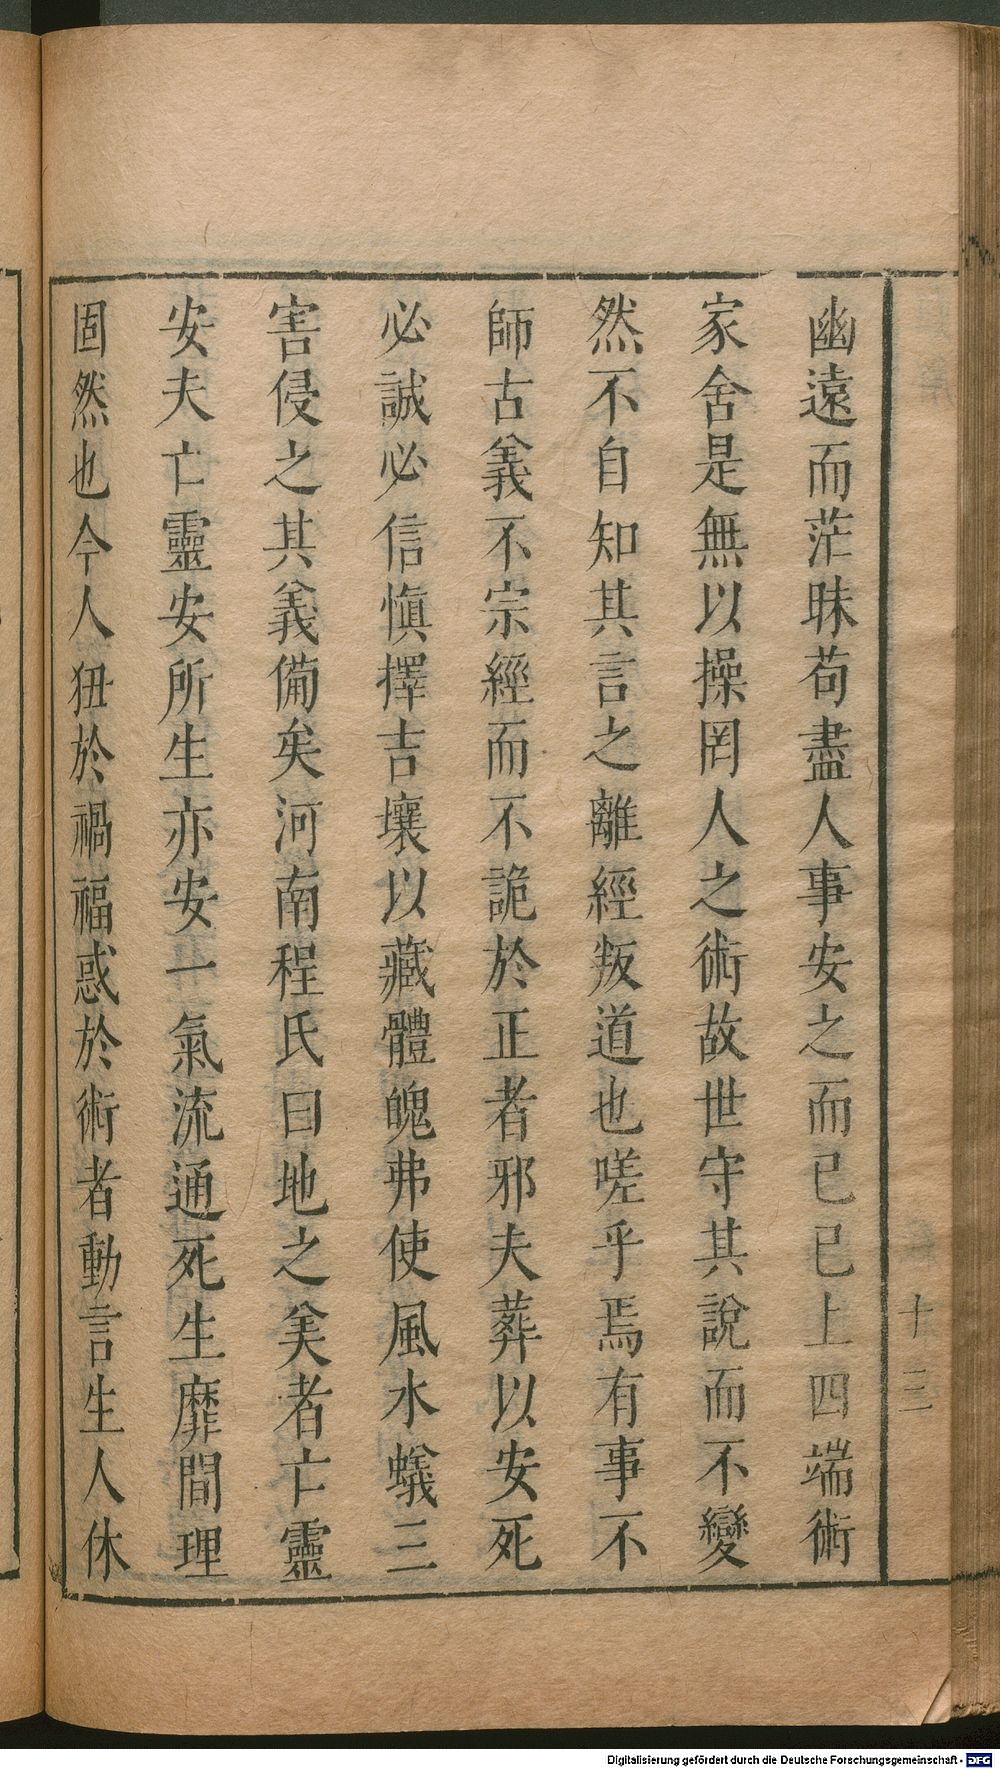 幽遠而茫昧苟盡人事安之而已已上四端術
家舍是無以操罔人之術故世守其說而不變
然不自知其言之離經叛道也嗟乎焉有事不
師古義不宗經而不詭於正者邪夫葬以安死
必誠必信慎擇吉壤以藏體魄弗使風水蟻三
害侵之其義備矣河南程氏曰地之美者亡靈
安夫亡靈安所生亦安一氣流通死生靡間理
固然也今人狃於禍福惑於術者動言生人休
十三
Digitalisierung gefördert durch die Deutsche Forschungsgemeinschaft - DFG